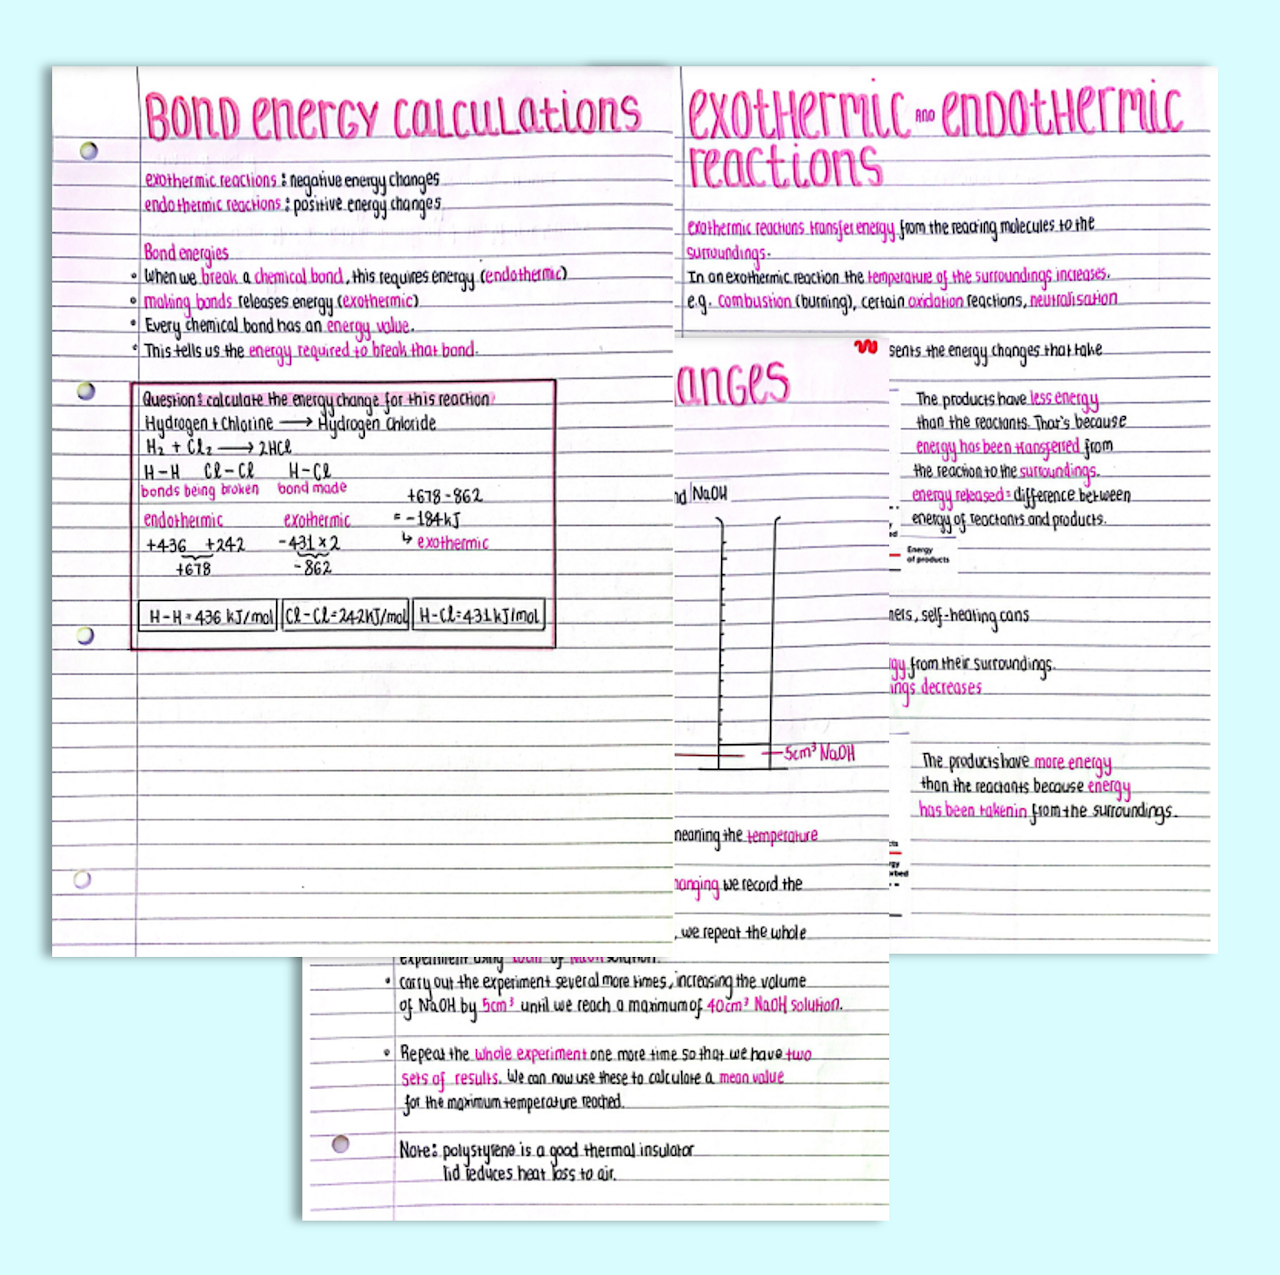 Bond energy calculations
exothermic reactions: negative energy changes
endothermic reactions: positive energy changes
Bond energies
• When we break a chemical bond, this requires energy (endothermic)
• making bonds releases energy (exothermic)
• Every chemical bond has an energy value.
• This tells us the energy required to break that bond.
Question: calculate the energy change for this reaction
Hydrogen + Chlorine → Hydrogen Chloride
H₂ + Cl₂ → 2HCl
H-H Cl-Cl H-Cl
bonds being broken bond made
+678 - 862
endothermic exothermic = -184kJ
+436 +242 -431 × 2 ↳ exothermic
+678 -862
H-H = 436 kJ/mol Cl-Cl = 242KJ/mol H-Cl = 431kJ/mol
exothermic AND endothermic
reactions
exothermic reactions transfer energy from the reacting molecules to the
surroundings.
In an exothermic reaction the temperature of the surroundings increases.
e.g. combustion (burning), certain oxidation reactions, neutralisation
sents the energy changes that take
The products have less energy
than the reactants. That's because
energy has been transferred from
the reaction to the surroundings.
energy released = difference between
energy of reactants and products.
Energy
of products
ners, self-heating cans
gy from their surroundings.
ings decreases
The products have more energy
than the reactants because energy
has been taken in from the surroundings.
anges
nd NaOH
5cm³ NaOH
meaning the temperature
hanging we record the
, we repeat the whole
experiment using 10cm³ of NaOH solution.
• carry out the experiment several more times, increasing the volume
of NaOH by 5cm³ until we reach a maximum of 40cm³ NaOH solution.
• Repeat the whole experiment one more time so that we have two
sets of results. We can now use these to calculate a mean value
for the maximum temperature reached.
Note: polystyrene is a good thermal insulator
lid reduces heat loss to air.